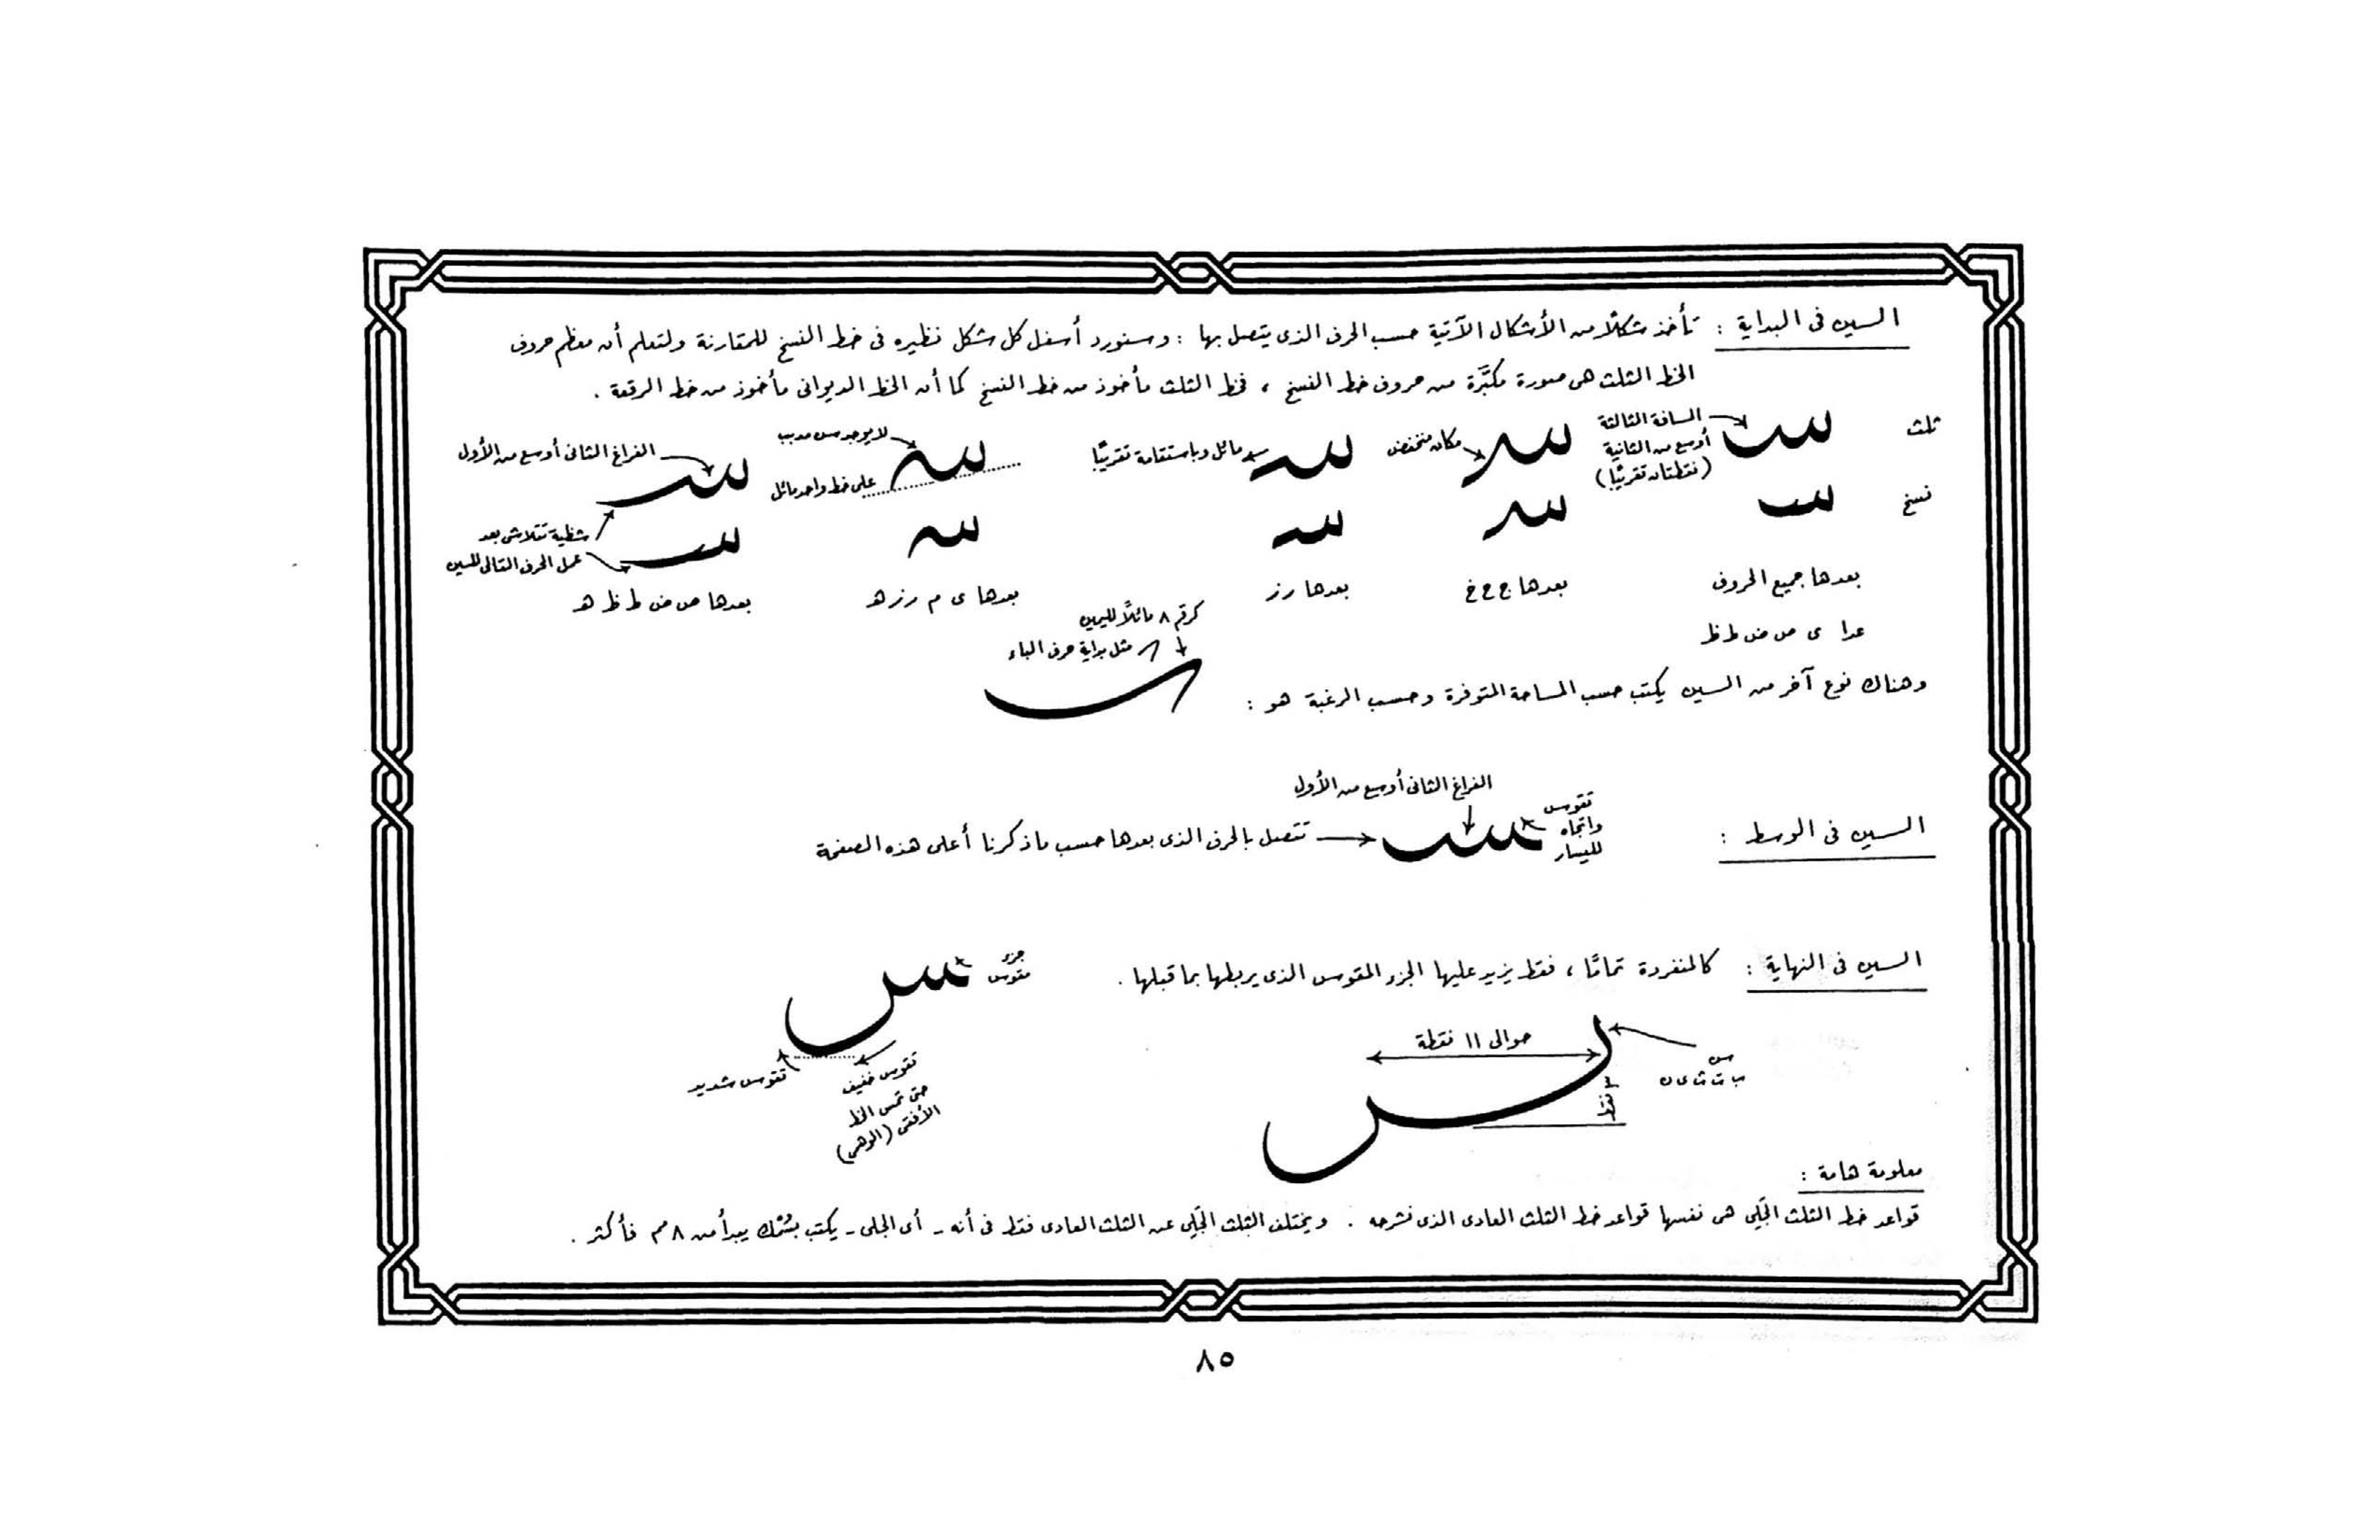 السين فى البداية : تأخذ شكلاً من الأشكال الآتية حسب الحرف الذى يتصل بها : وسنورد أسفل كل شكل نظيره فى خط النسخ للمقارنة ولتعلم أن معظم حروف
الخط الثلث هى صورة مكبَّرة من حروف خط النسخ ، فخط الثلث مأخوذ من خط النسخ كما أن الخط الديوانى مأخوذ من خط الرقعة .
ثلث
المسافة الثالثة
أوسع من الثانية
(نقطتان تقريبًا)
مكان منخفض
مائل وباستقامة تقريبًا
لا يوجد سن مدبب
على خط واحد مائل
الفراغ الثانى أوسع من الأول
نسخ
شظية تتلاشى بعد
عمل الحرف التالى للسين
بعدها جميع الحروف
عدا ى ص ض ط ظ
بعدها ج ح خ
بعدها ر ز
بعدها ى م ر ز هـ
بعدها ص ض ط ظ هـ
كرقم ٨ مائلاً لليمين
مثل بداية حرف الباء
وهناك نوع آخر من السين يكتب حسب المساحة المتوفرة وحسب الرغبة هو :
الفراغ الثانى أوسع من الأول
تقوس
واتجاه
لليسار
السين فى الوسط :
تتصل بالحرف الذى بعدها حسب ما ذكرنا أعلى هذه الصفحة
السين فى النهاية : كالمنفردة تمامًا ، فقط يزيد عليها الجزء المقوس الذى يربطها بما قبلها .
جزء
مقوس
تقوس شديد
تقوس خفيف
حتى تمس الخط
الأفقى (الوهمى)
حوالى ١١ نقطة
٣ نقط
س
ب ت ث ى ن
معلومة هامة :
قواعد خط الثلث الجَلِى هى نفسها قواعد خط الثلث العادى الذى نشرحه . ويختلف الثلث الجَلِى عن الثلث العادى فقط فى أنه - أى الجلى - يكتب بسُمْك يبدأ من ٨ مم فأكثر .
٨٥